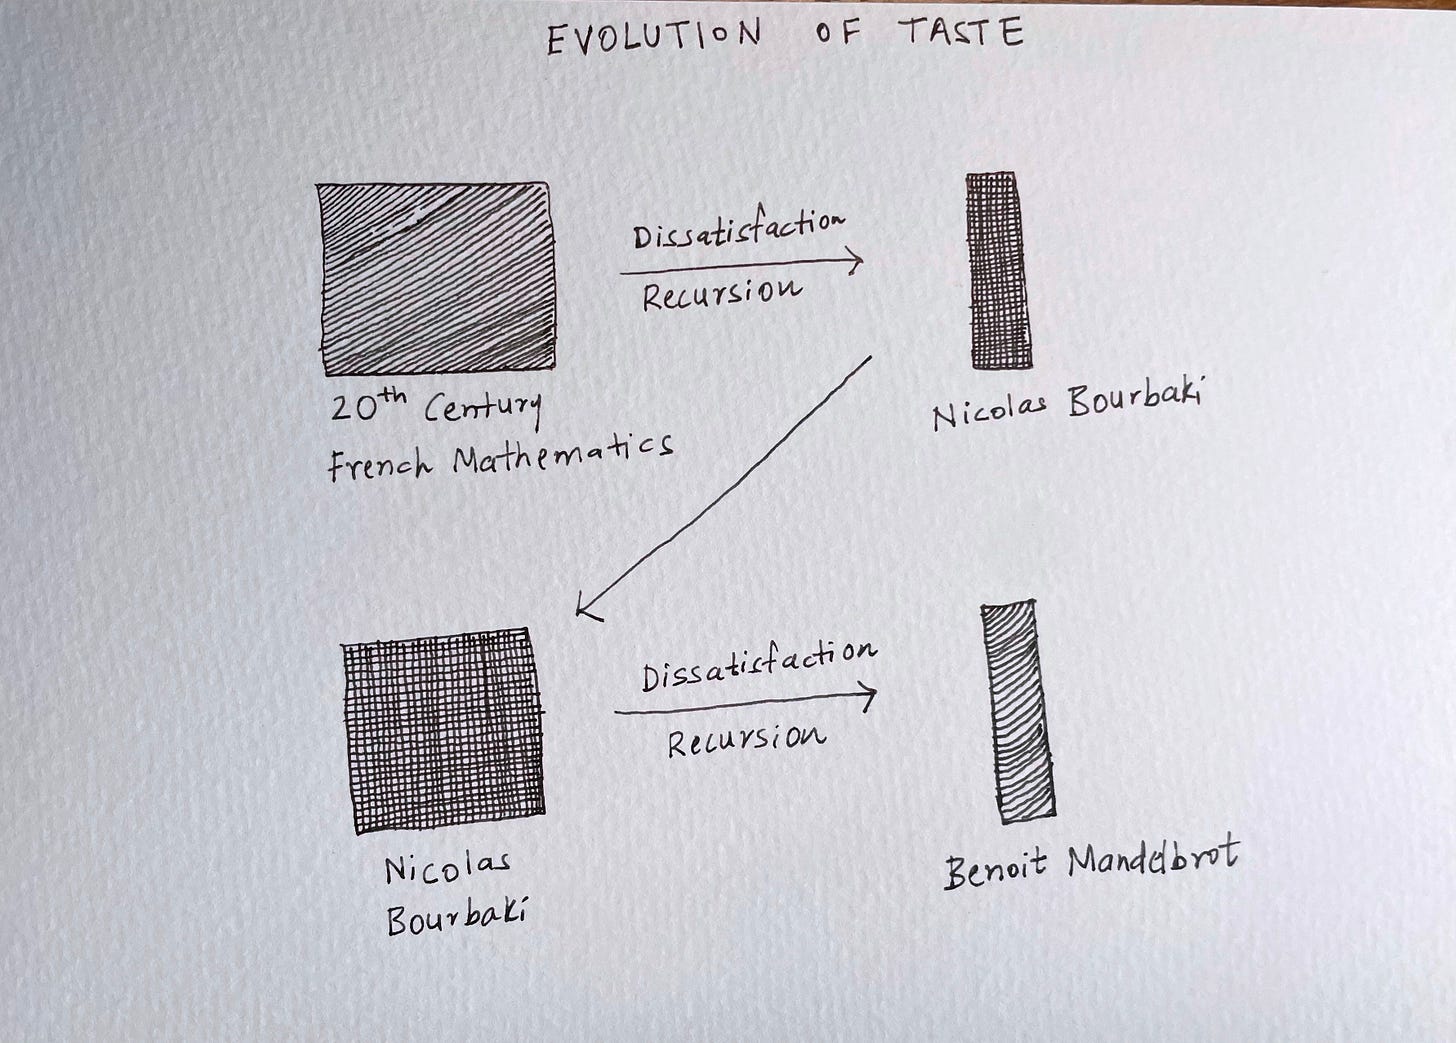 EVOLUTION OF TASTE
Dissatisfaction
Recursion
20th Century
French Mathematics
Nicolas Bourbaki
Dissatisfaction
Recursion
Nicolas
Bourbaki
Benoit Mandelbrot